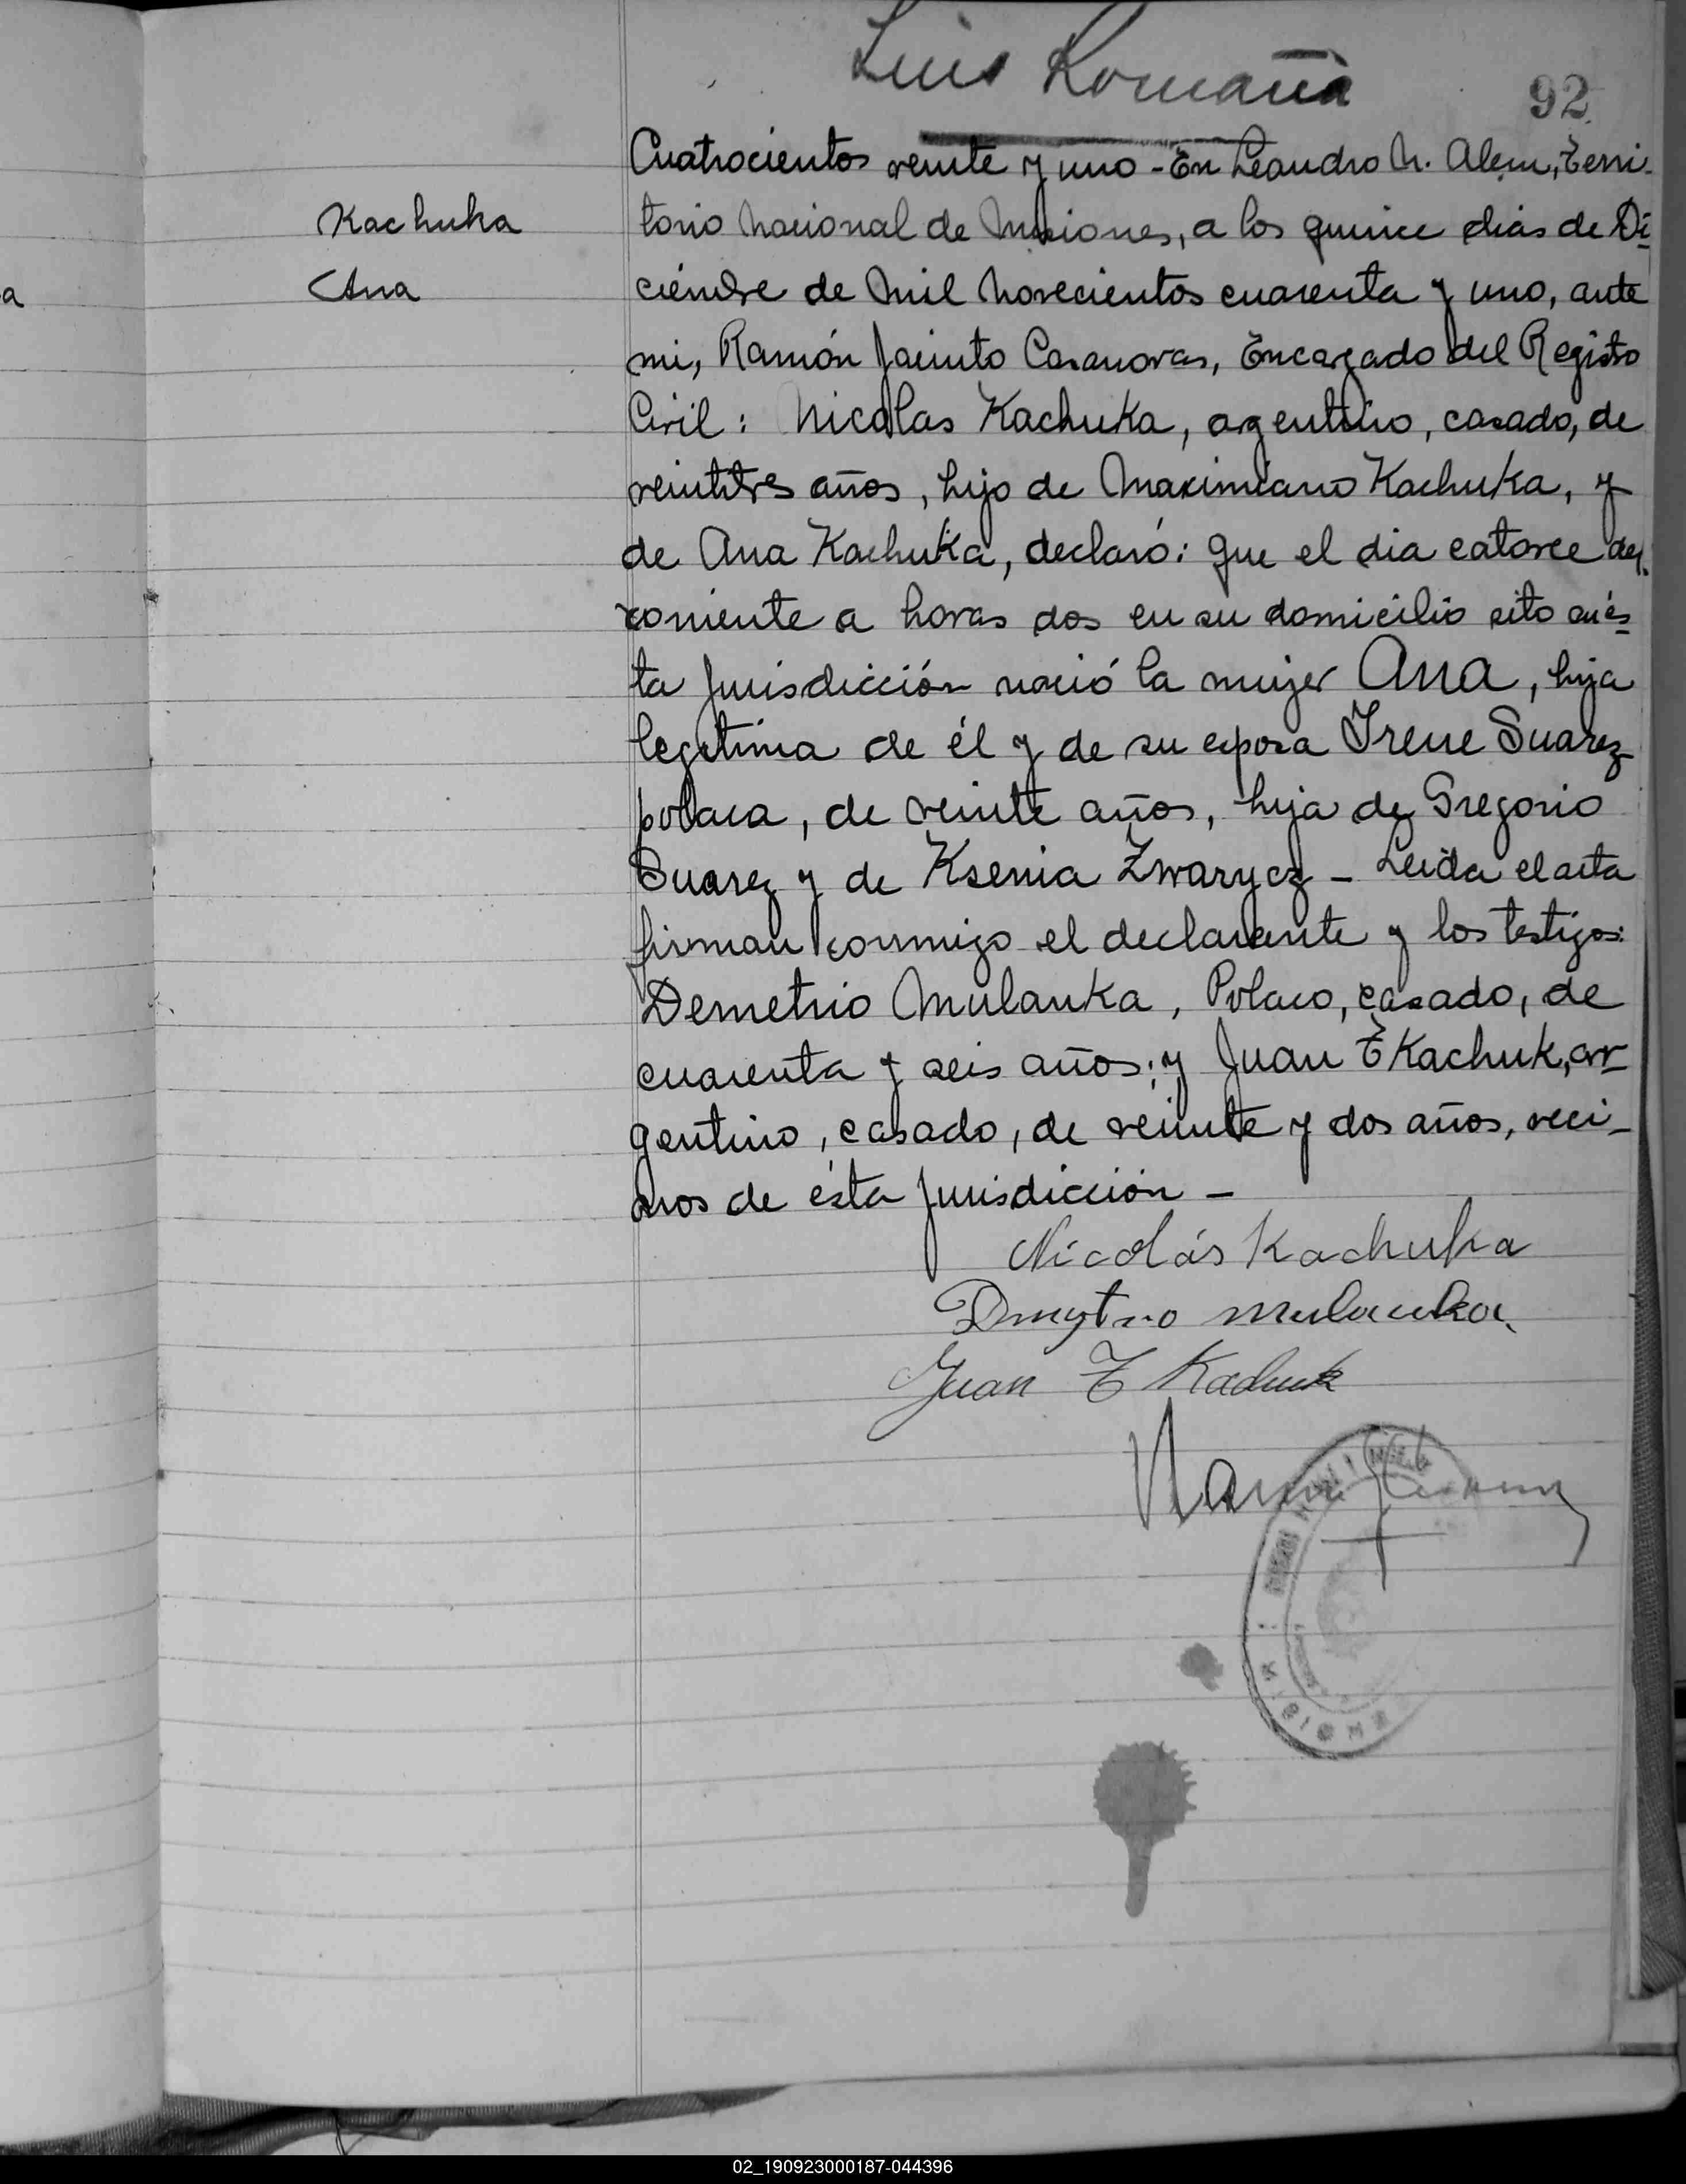 Luis Romaña
92
Cuatrocientos veinte y uno - En Leandro N. Alem, Terri-
Kachuka
torio Nacional de Misiones, a los quince dias de Di-
Ana
ciembre de Mil Novecientos cuarenta y uno, ante
a
mi, Ramón Jacinto Casanovas, Encargado del Registo
Civil: Nicolas Kachuka, argentino, casado, de
veintitres años, hijo de Maximiano Kachuka, y
de Ana Kachuka, declaró: que el dia catorce del
corriente a horas dos en su domicilio sito en és-
ta Jurisdicción nació la mujer Ana, hija
legitima de él y de su esposa Irene Suarez
polaca, de veinte años, hija de Gregorio
Suarez y de Ksenia Zwarycz - Leida el acta
firman conmigo el declarante y los testigos:
Demetrio Mulanka, Polaco, casado, de
cuarenta y seis años; y Juan T Kachuk, ar-
gentino, casado, de veinte y dos años, veci-
nos de ésta Jurisdicción -
Nicolás Kachuka
Dmytro Mulanka
Juan T Kachuk
02_190923000187-044396